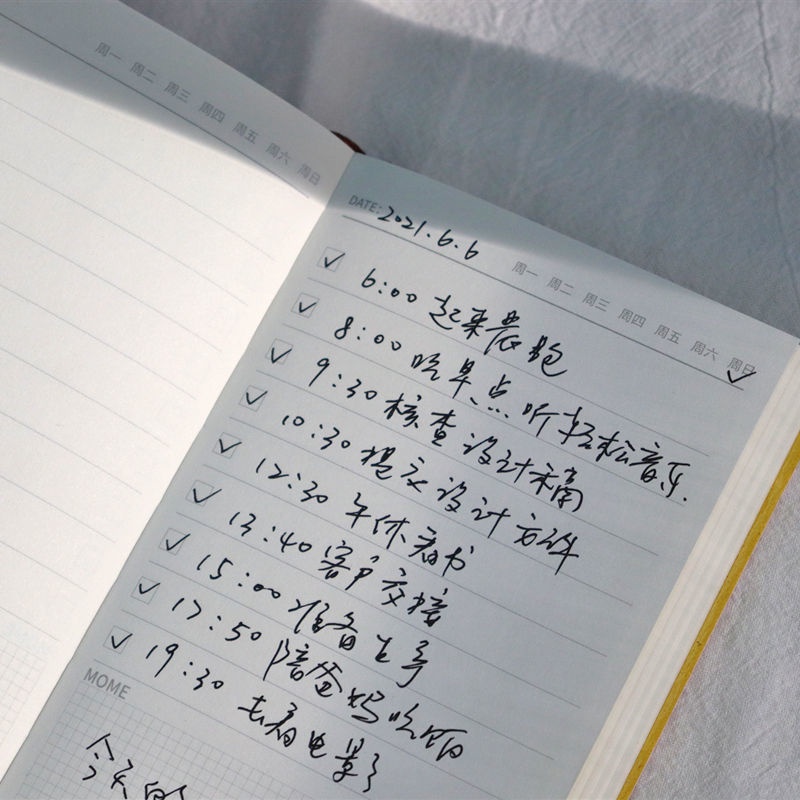 周一 周二 周三 周四 周五 周六 周日
DATE: 2021.6.6
周一 周二 周三 周四 周五 周六 周日
6:00 起来晨跑
8:00 吃早点 听轻松音乐.
9:30 核查设计稿
10:30 提交设计方案
12:30 午休看书
13:40 客户交接
15:00 准备
17:50 陪爸妈吃饭
19:30 去看电影
MOME
今天的